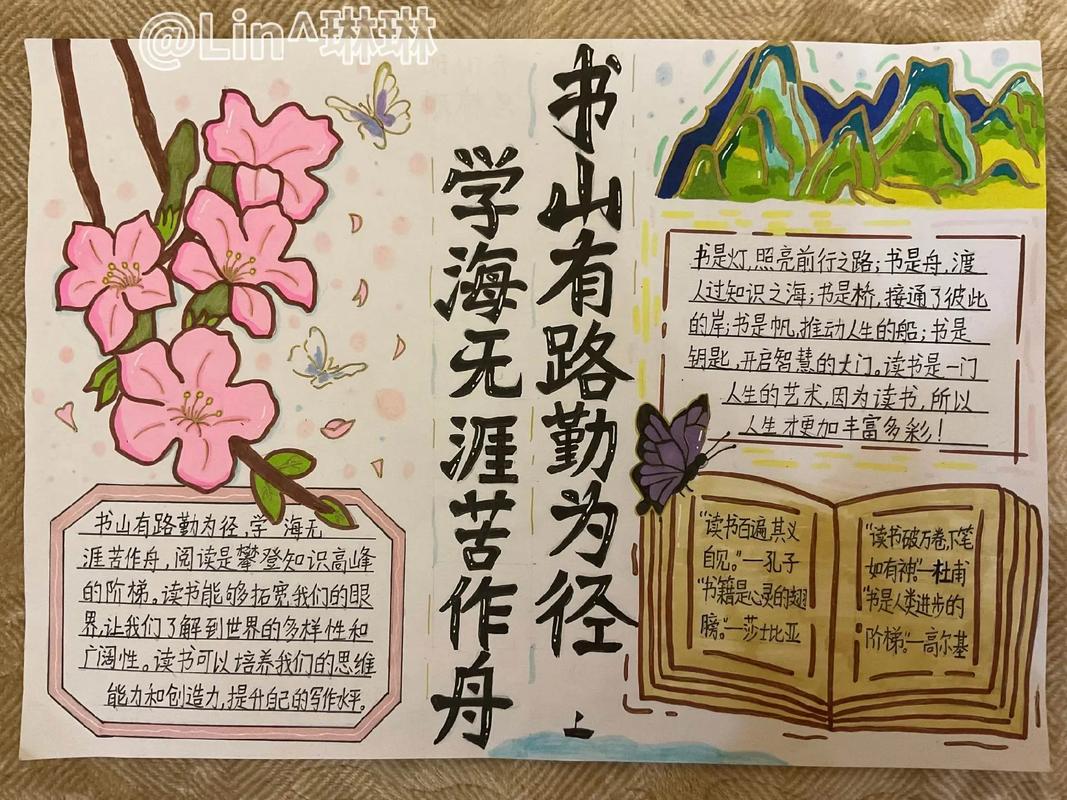 @Lin^琳琳
书山有路勤为径
学海无涯苦作舟
书是灯,照亮前行之路;书是舟,渡
人过知识之海;书是桥,接通了彼此
的岸;书是帆,推动人生的船;书是
钥匙,开启智慧的大门。读书是一门
人生的艺术,因为读书,所以
人生才更加丰富多彩!
书山有路勤为径,学 海无
涯苦作舟,阅读是攀登知识高峰
的阶梯。读书能够拓宽我们的眼
界,让我们了解到世界的多样性和
广阔性。读书可以培养我们的思维
能力和创造力,提升自己的写作水平。
“读书百遍,其义
自见。”—孔子
“书籍是心灵的翅
膀。”—莎士比亚
“读书破万卷,下笔
如有神”—杜甫
“书是人类进步的
阶梯.”—高尔基